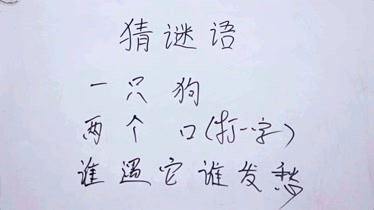 猜谜语
一只狗
两个口(打一字)
谁遇它谁发愁